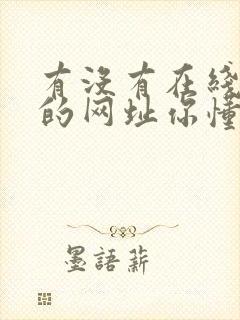 有没有在线
的网址你懂
墨語薪